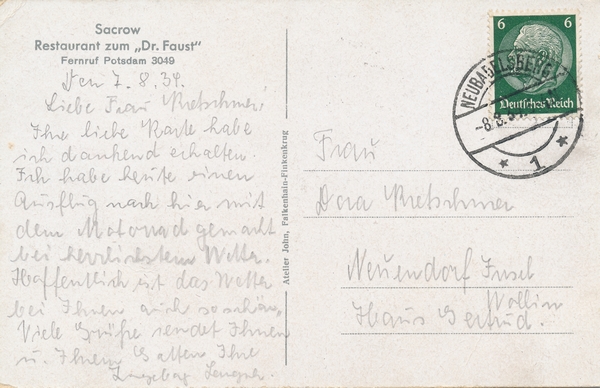 Sacrow
Restaurant zum „Dr. Faust"
Fernruf Potsdam 3049
Den 7.8.34.
Liebe Frau Kretschmer!
Ihre liebe Karte habe
ich dankend erhalten.
Ich habe heute einen
Ausflug nach hier mit
dem Motorrad gemacht
bei herrlichstem Wetter.
Hoffentlich ist das Wetter
bei Ihnen auch so schön,
Viele Grüße sendet Ihnen
u. Ihrem Gatten Ihre
Ingeborg
Atelier John, Falkenhain-Finkenkrug
6 6
Deutsches Reich
NEUBABELSBERG
-8.8.34
* 1 *
Frau
Dora Kretschmer
Neuendorf Insel
Wollin
Haus Gertrud.